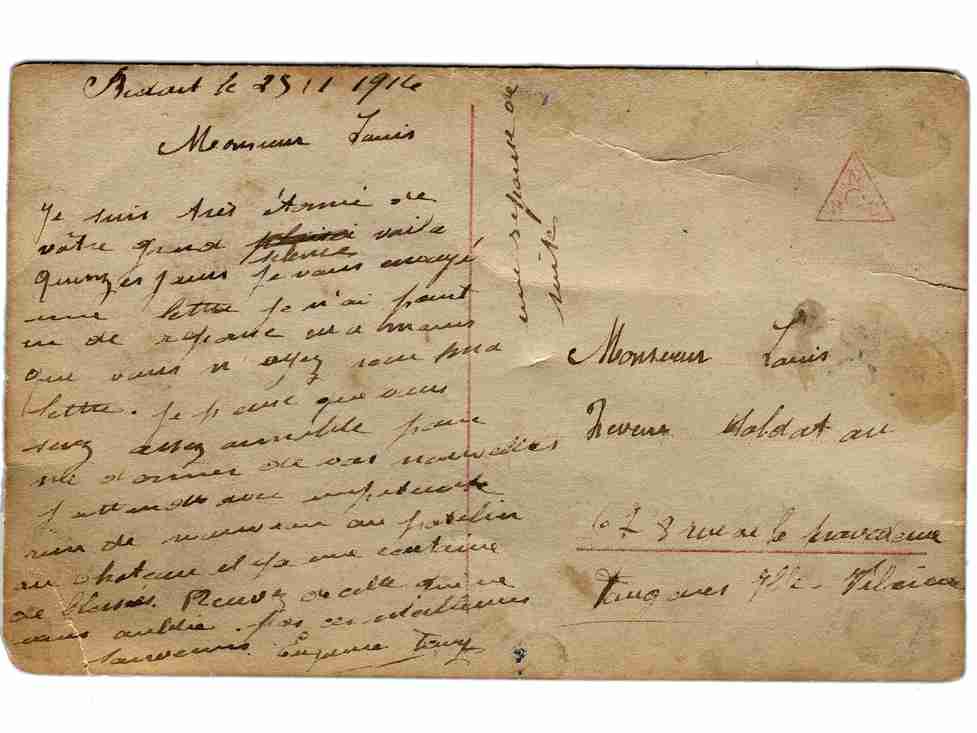 le 25 11 1914
Monsieur Louis
Je suis très étonné de
vôtre grand silence voila
quinzes jours je vous envoyé
une lettre je n'ai point
u de reponse
que vous n'ayez ma
lettre. Je pense que vous
serez assez aimable pour
me donner de vos nouvelles
j'attends avec impatience
rien de nouveau au
au chateau et ya une centaine
de blesses. Recevez de celle qui ne
vous oublie pas ces
souvenirs. Eugenie
une reponse de
suite
Monsieur Louis
Soldat au
8 rue de la
Ille-Vilaine